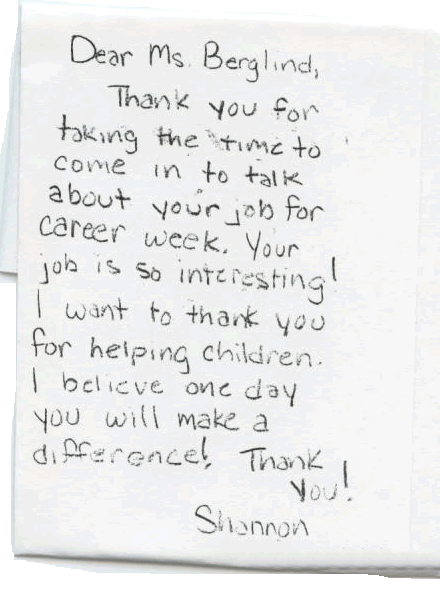 Dear Ms. Berglind,
Thank you for
taking the time to
come in to talk
about your job for
career week. Your
job is so interesting!
I want to thank you
for helping children.
I believe one day
you will make a
difference! Thank
You!
Shannon